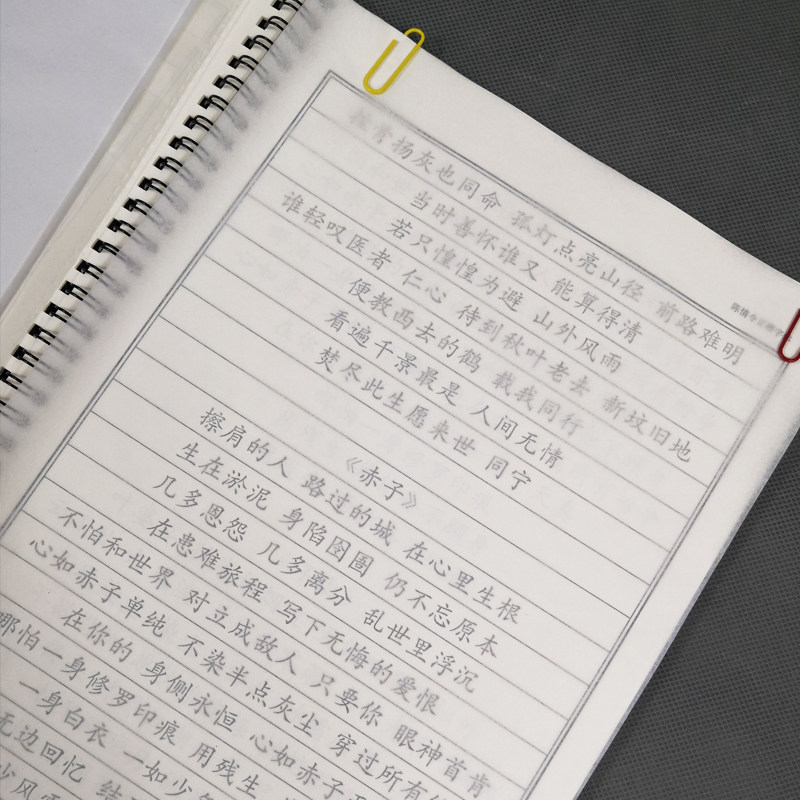 骨扬灰也同命 孤灯点亮山径 前路难明
当时善怀谁又 能算得清
若只惶惶为避 山外风雨
谁轻叹医者 仁心 待到秋叶老去 新坟旧地
便教西去的鹤 载我同行
看遍千景最是 人间无情
焚尽此生愿来世 同宁
《赤子》
擦肩的人 路过的城 在心里生根
生在淤泥 身陷囹圄 仍不忘原本
几多恩怨 几多离分 乱世里浮沉
在患难旅程 写下无悔的爱恨
不怕和世界 对立成敌人 只要你 眼神首肯
心如赤子单纯 不染半点灰尘 穿过所有
在你的 身侧永恒 心如赤子
那怕一身修罗印痕 用残生
一身白衣 一如少
无边回忆
少风
陈情令